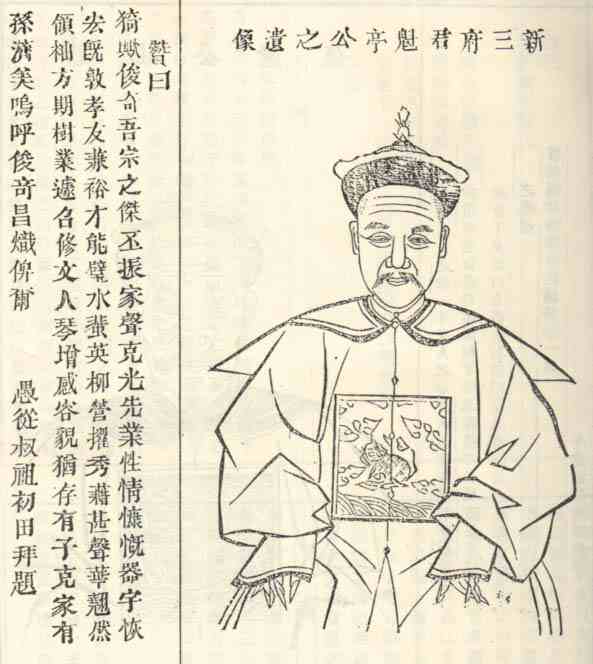 新三府君魁亭公之遺像
贊曰
猗歟俊奇吾宗之傑丕振家聲克光先業性情慷慨器宇恢
宏既敦孝友兼裕才能璧水蜚英柳營擢秀藉甚聲華翹然
領袖方期樹業遽召修文人琴增感容貌猶存有子克家有
孫濟美嗚呼俊奇昌熾俾爾　愚從叔祖初田拜題